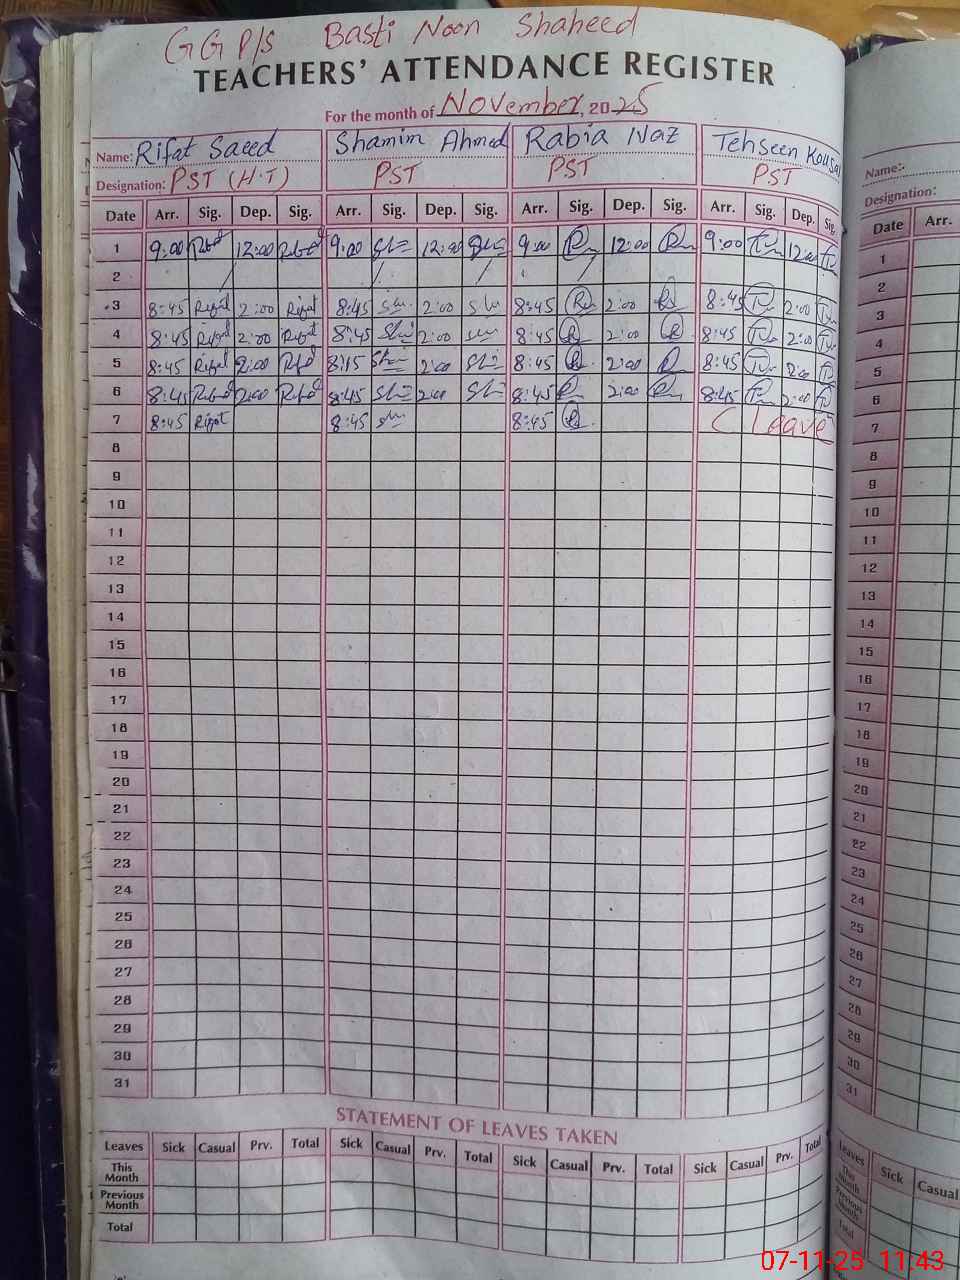 GGP/s Basti Noon Shaheed
TEACHERS' ATTENDANCE REGISTER
For the month of November, 2025
Name: Rifat Saeed Shamim Ahmed Rabia Naz Tehseen Kousar
Designation: PST (H.T) PST PST PST
Date Arr. Sig. Dep. Sig. Arr. Sig. Dep. Sig. Arr. Sig. Dep. Sig. Arr. Sig. Dep. Sig.
1 9:00 12:00 9:00 12:00 9:00 12:00 9:00 12:00
2
3 8:45 Rifat 2:00 Rifat 8:45 2:00 8:45 2:00 8:45 2:00
4 8:45 Rifat 2:00 Rifat 8:45 2:00 8:45 2:00 8:45 2:00
5 8:45 Rifat 2:00 8:45 2:00 8:45 2:00 8:45 2:00
6 8:45 2:00 8:45 2:00 8:45 2:00 8:45 2:00
7 8:45 Rifat 8:45 8:45 C Leave
8
9
10
11
12
13
14
15
16
17
18
19
20
21
22
23
24
25
26
27
28
29
30
31
STATEMENT OF LEAVES TAKEN
Leaves Sick Casual Prv. Total Sick Casual Prv. Total Sick Casual Prv. Total Sick Casual Prv. Total
This Month
Previous Month
Total
Name:
Designation:
Date Arr.
1
2
3
4
5
6
7
8
9
10
11
12
13
14
15
16
17
18
19
20
21
22
23
24
25
26
27
28
29
30
31
Leaves Sick Casual
This Month
Previous Month
Total
07-11-25 11:43